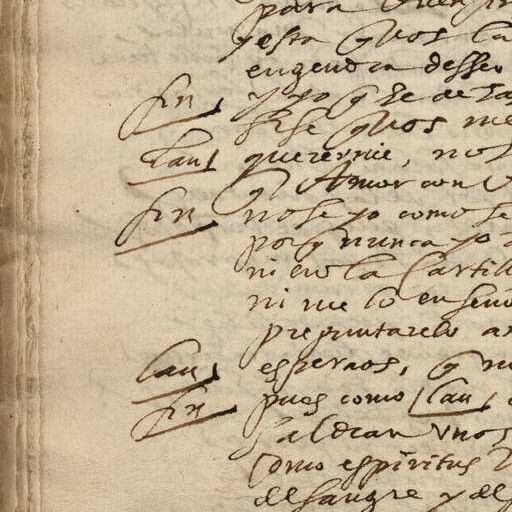 para
y esta q̃ vos la
engendra desseo
fin y yo q̃ he de
se q̃ vos me
Lau quererme, no
q̃ Amor con
fin no se yo como se
porq̃ nunca yo
ni en la Cartill
ni me lo enseño
preguntarelo a
lau esperaos, q̃ n
fin pues como lau
saldran vnos
como espiritus
de sangre y de